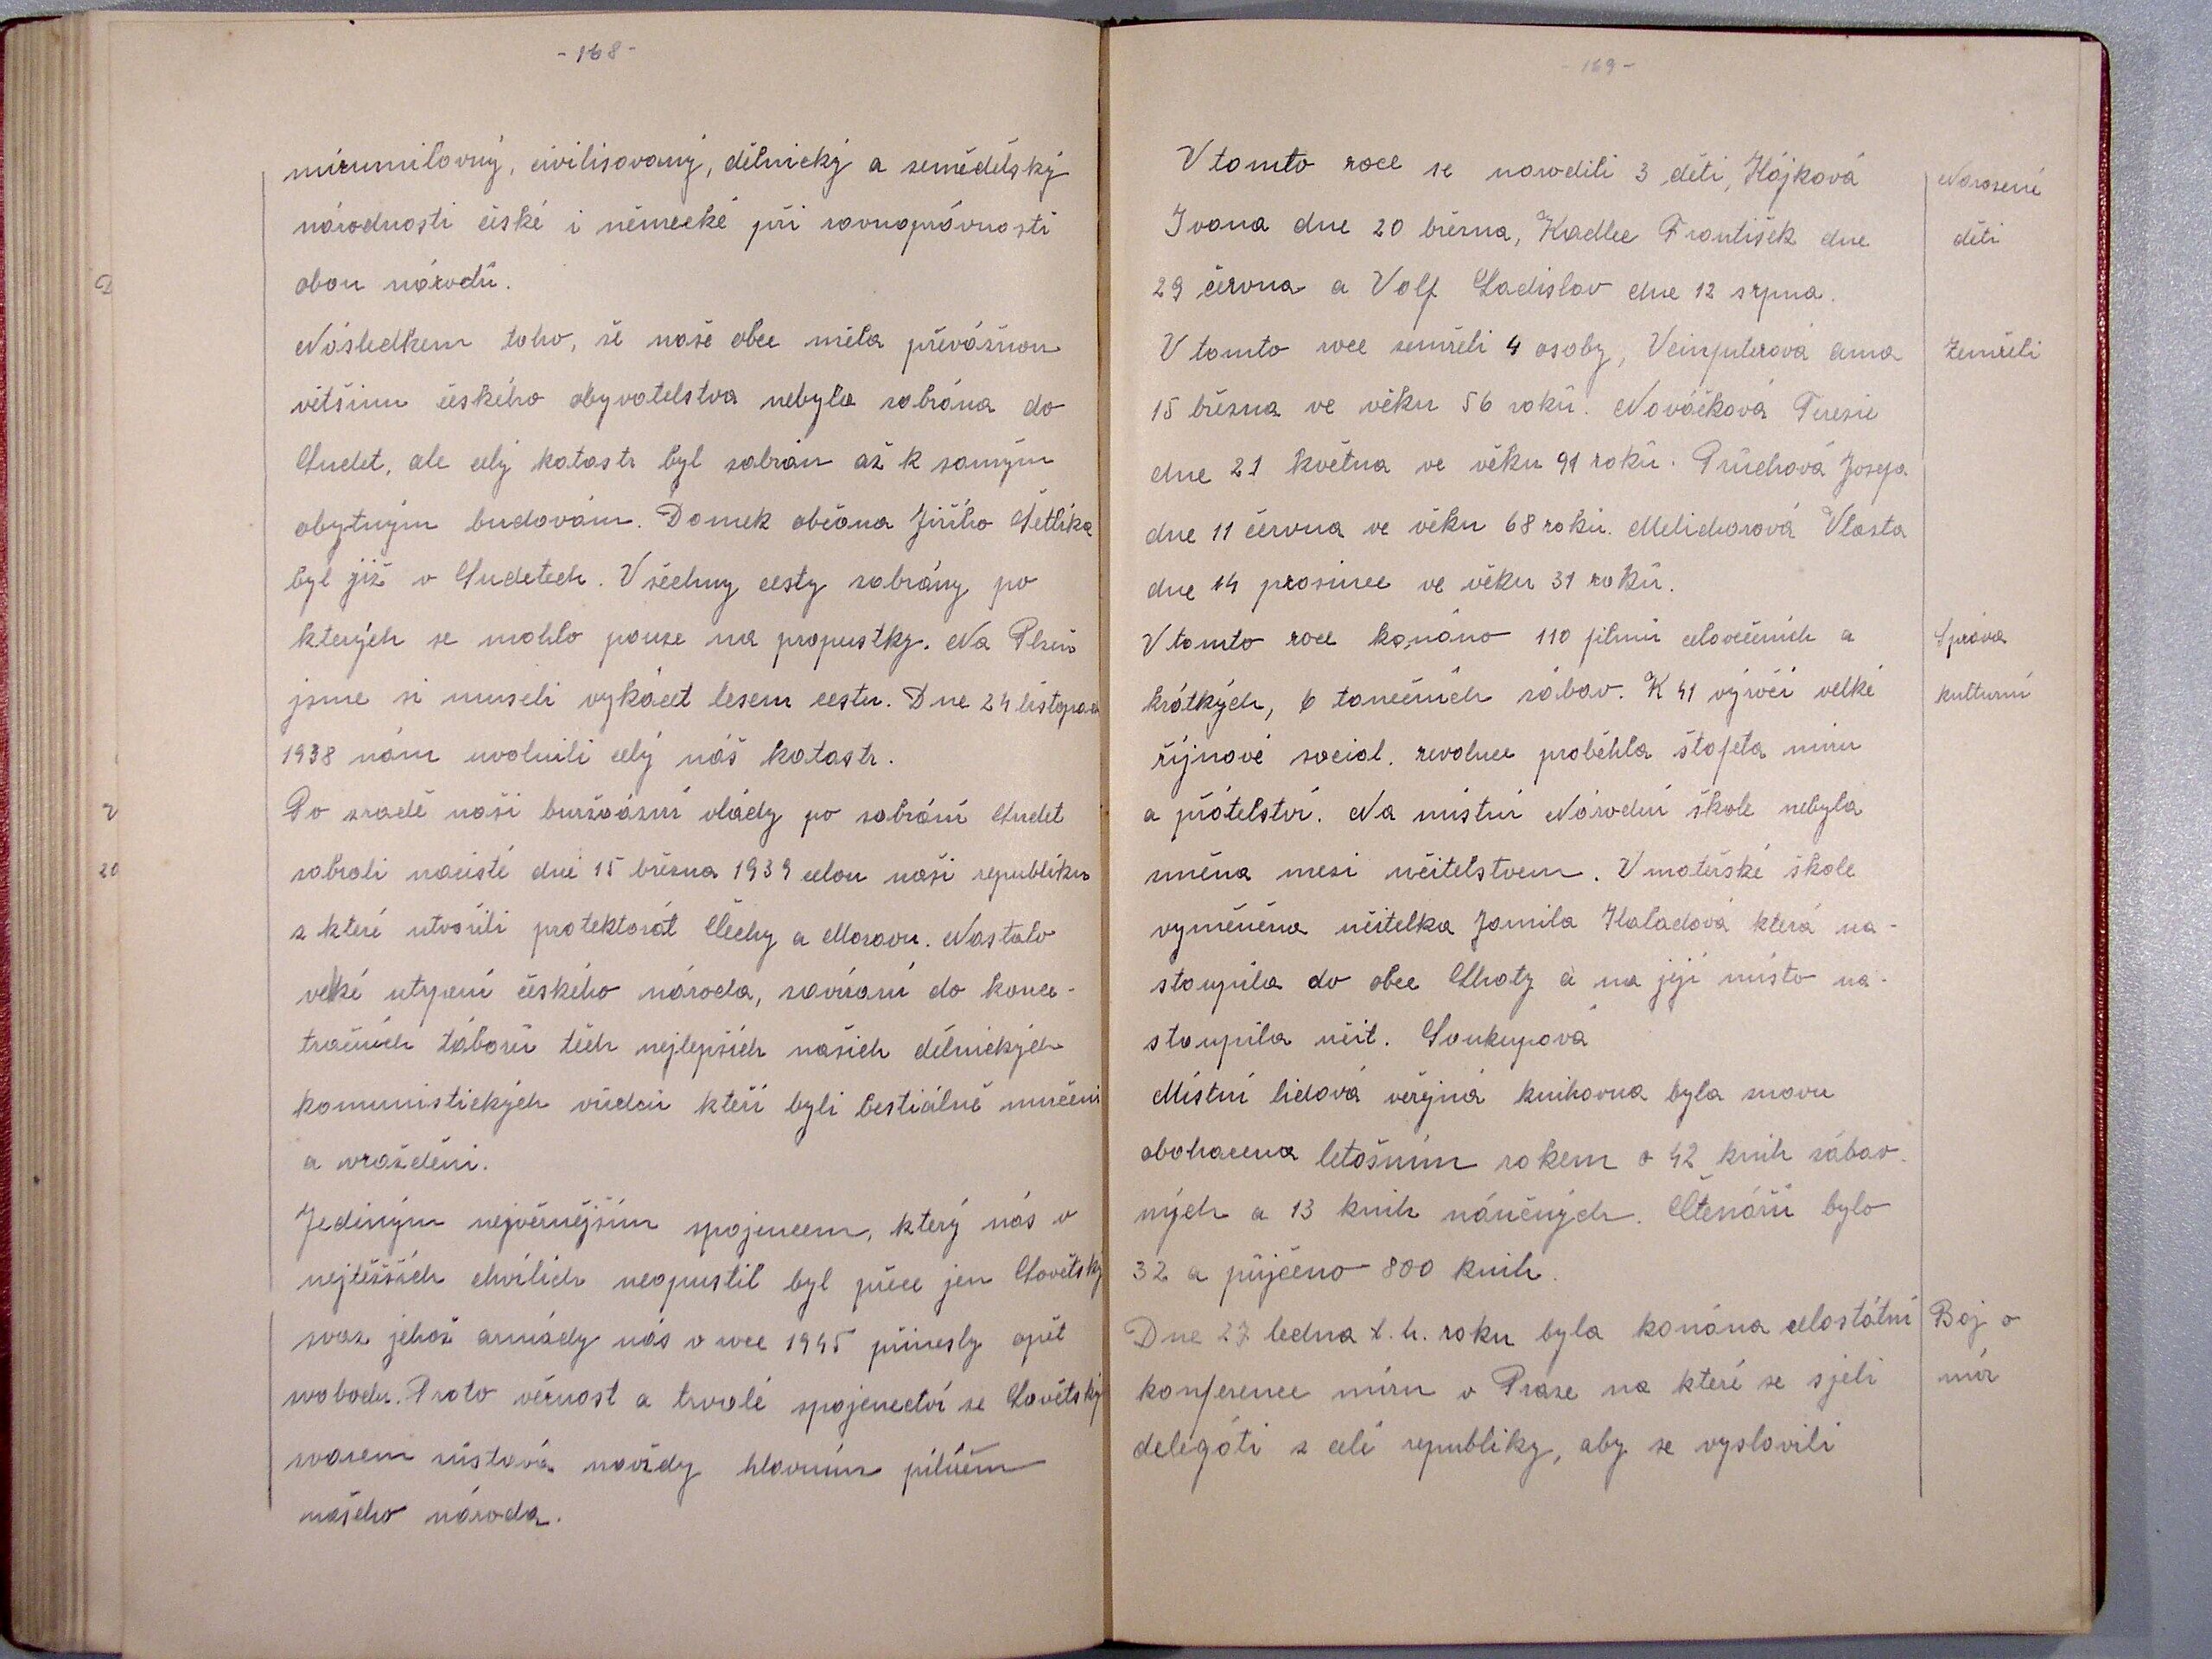 - 168 -
mírumilovný, civilisovaný, dělnický a zemědělský
národnosti české i německé při rovnoprávnosti
obou národů.
Následkem toho, že naše obec měla převážnou
většinu českého obyvatelstva nebyla zabrána do
Sudet, ale celý katastr byl zabrán až k samým
obytným budovám. Domek občana Jiřího Šetlíka
byl již v Sudetech. Všechny cesty zabrány po
kterých se mohlo pouze na propustky. Na Plzeň
jsme si museli vykácet lesem cestu. Dne 24 listopad
1938 nám uvolnili celý náš katastr.
Po zradě naší buržoázní vlády po zabrání Sudet
zabrali nacisté dne 15 března 1939 celou naši republiku
z které utvořili protektorát Čechy a Moravu. Nastalo
velké utrpení českého národa, zavírání do konce-
tračních táborů těch nejlepších našich dělnických
komunistických vůdců kteří byli bestiálně mučeni
a vražděni.
Jediným nejvěrnějším spojencem, který nás v
nejtěžších chvílích neopustil byl přece jen Sovětský
svaz jehož armády nás v roce 1945 přinesly opět
svobodu. Proto věrnost a trvalé spojenectví se Sovětský
svazem zůstává navždy hlavním pilířem
našeho národa.
- 169 -
V tomto roce se narodili 3 děti, Hájková
Ivana dne 20 března, Kadlec František dne
29 června a Volf Ladislav dne 12 srpna.
Narozené
děti
V tomto roce zemřeli 4 osoby, Veinfuterová Anna
15 března ve věku 56 roků. Nováčková Terezie
dne 21 května ve věku 91 roků. Průchová Josefa
dne 11 června ve věku 68 roků. Melicharová Vlasta
dne 14 prosince ve věku 31 roků.
Zemřeli
V tomto roce konáno 110 filmů celovečerních a
krátkých, 6 tanečních zábav. K 41 výročí velké
říjnové social. revoluce proběhla štafeta míru
a přátelství. Na místní Národní škole nebyla
změna mezi učitelstvem. V mateřské škole
vyměněna učitelka Jamila Haladová která na-
stoupila do obce Lhoty a na její místo na-
stoupila učit. Soukupová
Správa
kulturní
Místní lidová veřejná knihovna byla znovu
obohacena letošním rokem o 42 knih zábav-
ných a 13 knih náučných. Čtenářů bylo
32 a půjčeno 800 knih.
Dne 27 ledna t.h. roku byla konána celostátní
konference míru v Praze na které se sjeli
delegáti z celé republiky, aby se vyslovili
Boj o
mír